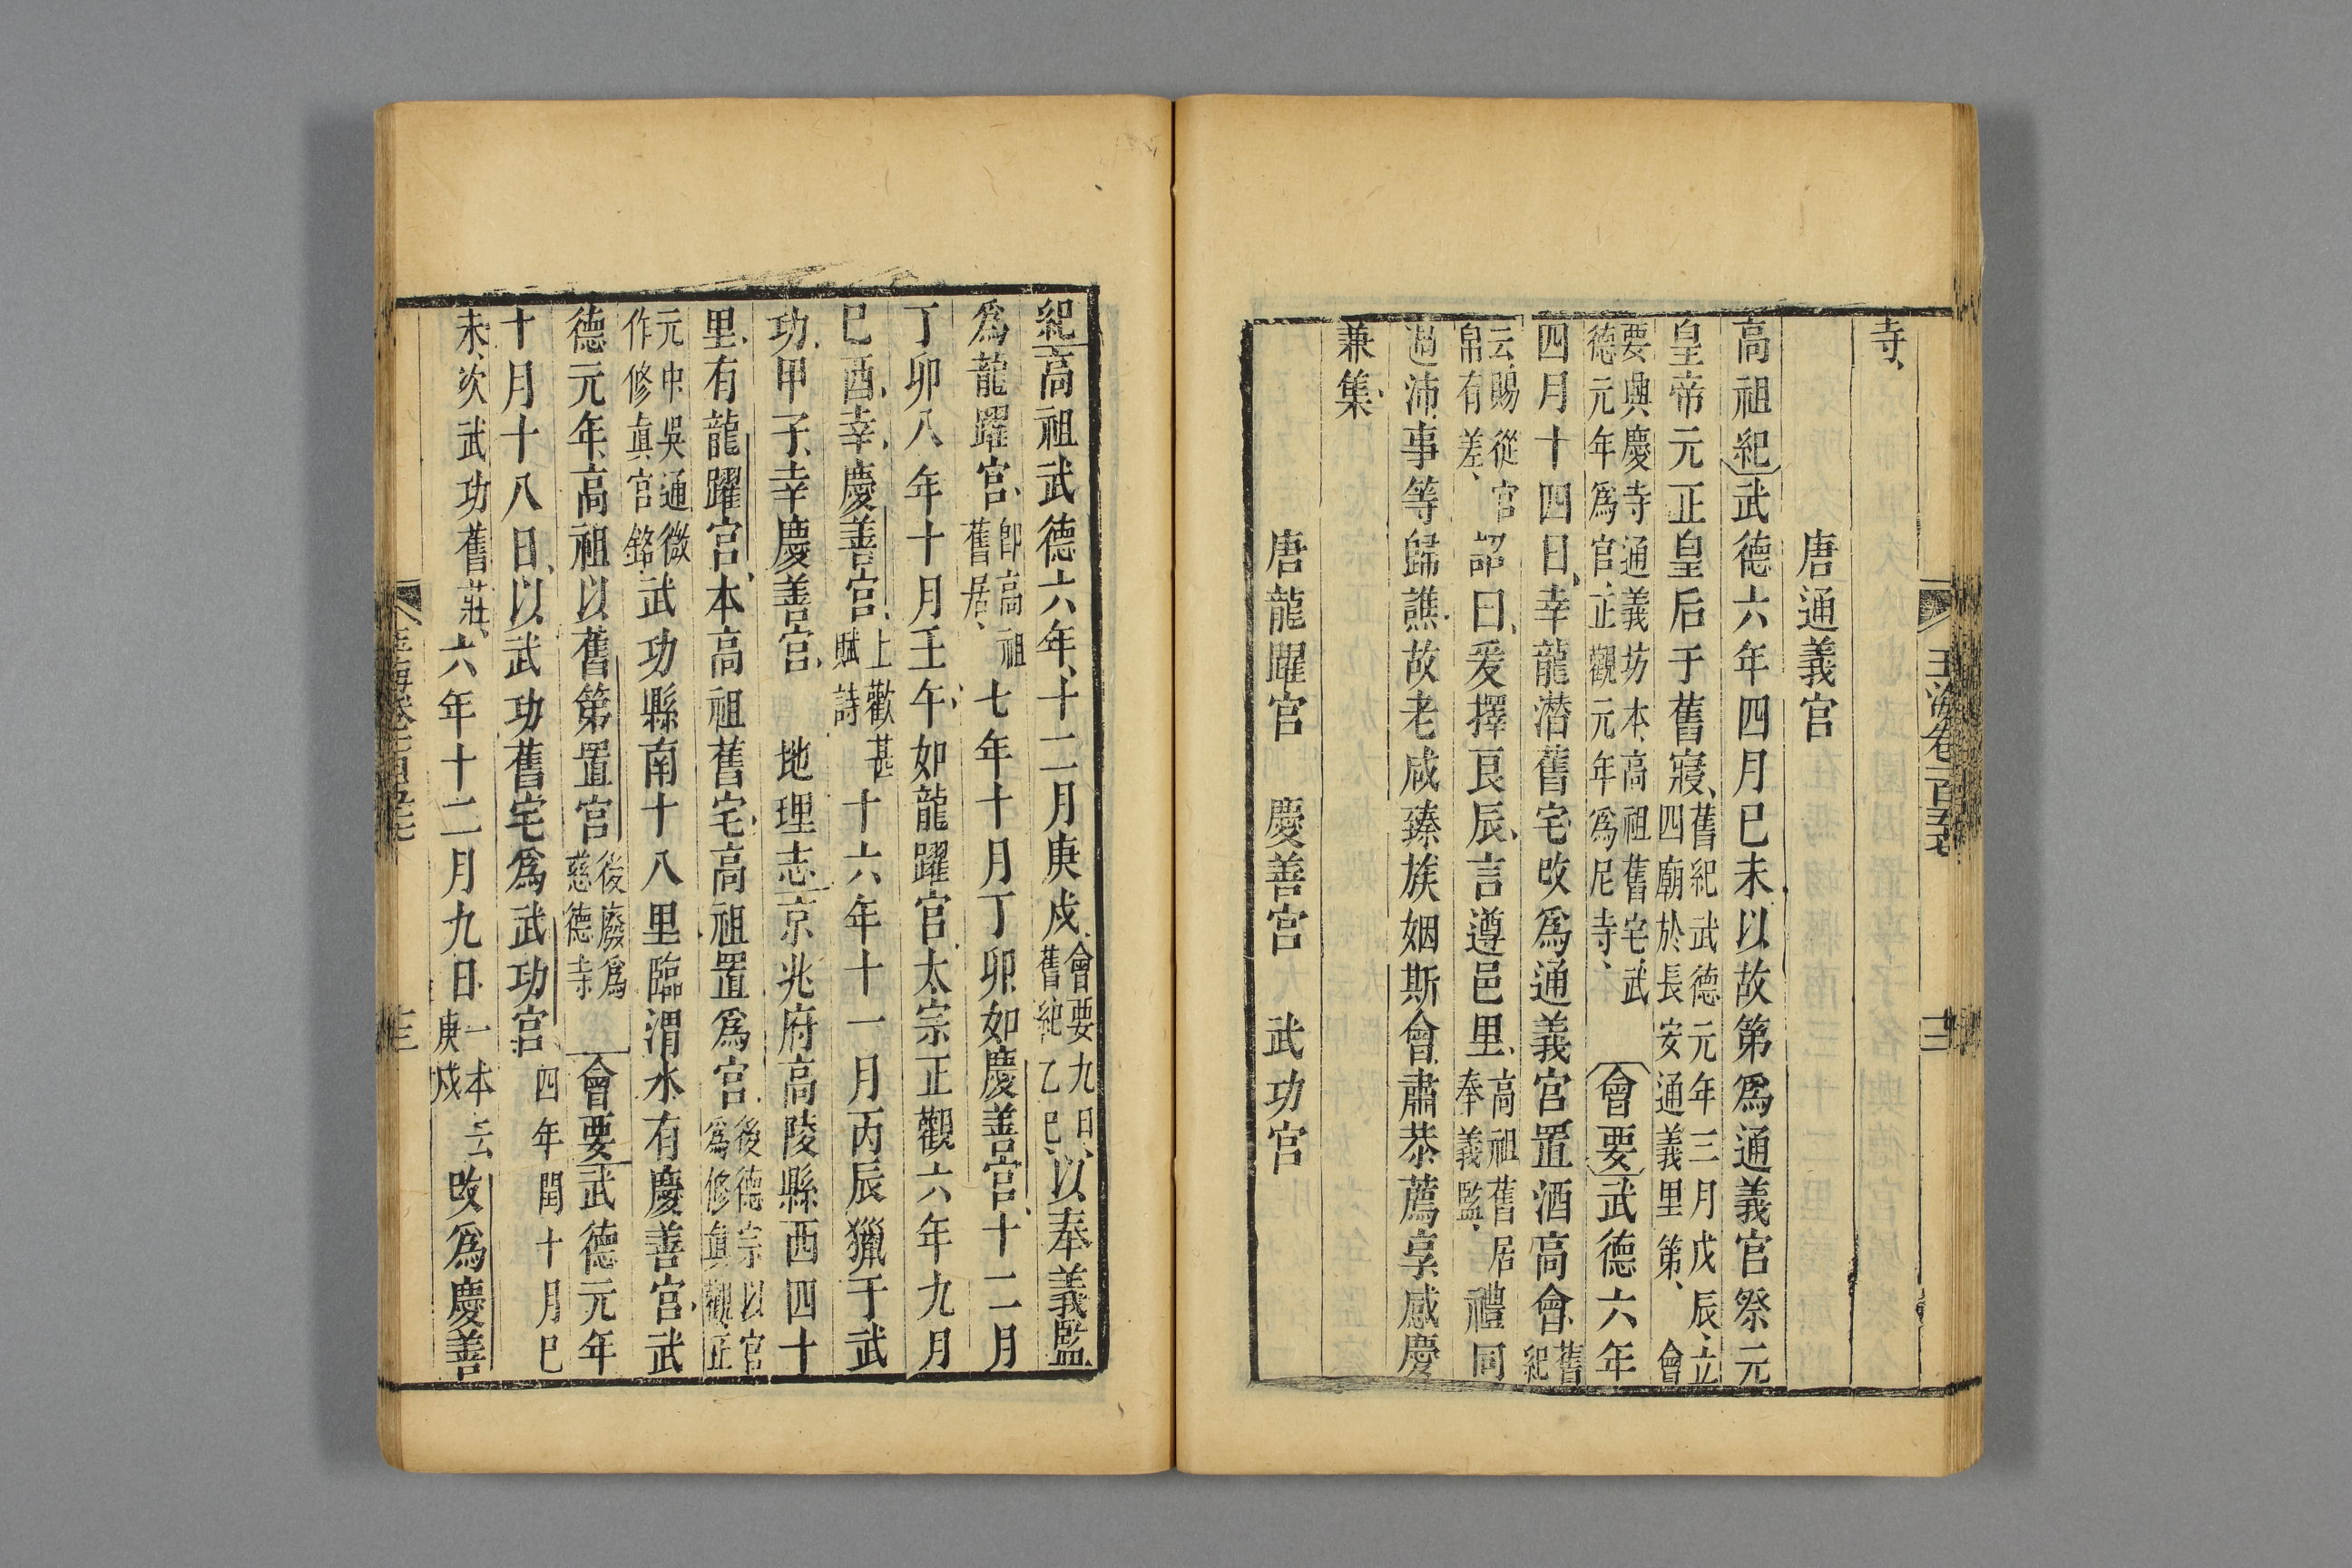 寺
唐通義宮
高祖紀武德六年四月巳未以故第爲通義宮祭元
皇帝元正皇后于舊寢舊紀武德元年三月戊辰立四廟於長安通義里第會
要興慶寺通義坊本高祖舊宅武德元年爲宮正觀元年爲尼寺會要武德六年
四月十四日幸龍潛舊宅改爲通義宮置酒高會舊紀
云賜從官帛有差詔曰爰擇良辰言遵邑里高祖舊居奉義監禮同
過沛事等歸譙故老咸臻族姻斯會肅恭薦享感慶
兼集
唐龍躍宮 慶善宮 武功宮
紀高祖武德六年十二月庚戌會要九日舊紀乙巳以奉義監
爲龍躍宮卽高祖舊居七年十月丁卯如慶善宮十二月
丁卯八年十月壬午如龍躍宮太宗正觀六年九月
巳酉幸慶善宮上歡甚賦詩十六年十一月丙辰獵于武
功甲子幸慶善宮 地理志京兆府高陵縣西四十
里有龍躍宮本高祖舊宅高祖置爲宮後德宗以宮爲修眞觀正
元中吳通微作修眞宮銘武功縣南十八里臨渭水有慶善宮武
德元年高祖以舊第置宮後廢爲慈德寺會要武德元年
十月十八日以武功舊宅爲武功宮四年閏十月巳
未次武功舊莊六年十二月九日一本云庚戌改爲慶善
玉海卷一百五十七